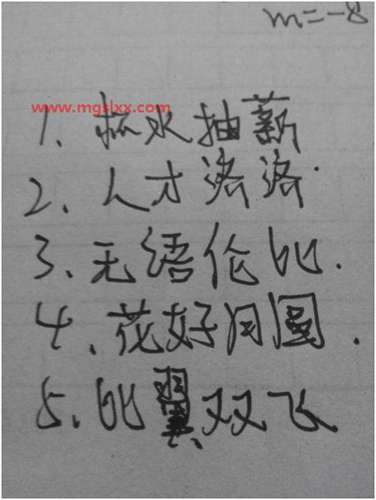 m=-8
www.mgslxx.com
1、杯水抽薪
2、人才济济.
3、无语伦比.
4、花好月圆.
5、比翼双飞